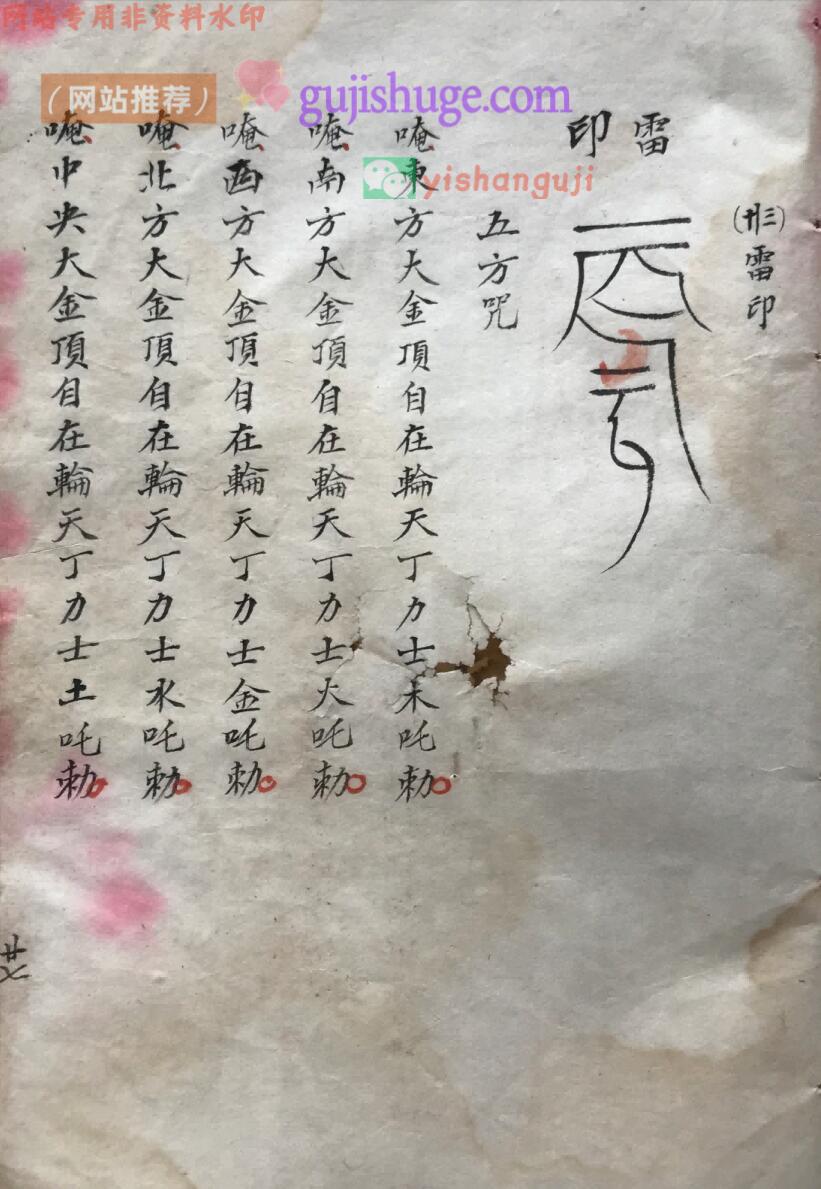 网站专用非资料水印
(网站推荐)
gujishuge.com
yishanguji
(形)雷印
雷印
五方咒
唵東方大金頂自在輪天丁力士木吒勅
唵南方大金頂自在輪天丁力士火吒勅
唵西方大金頂自在輪天丁力士金吒勅
唵北方大金頂自在輪天丁力士水吒勅
唵中央大金頂自在輪天丁力士土吒勅